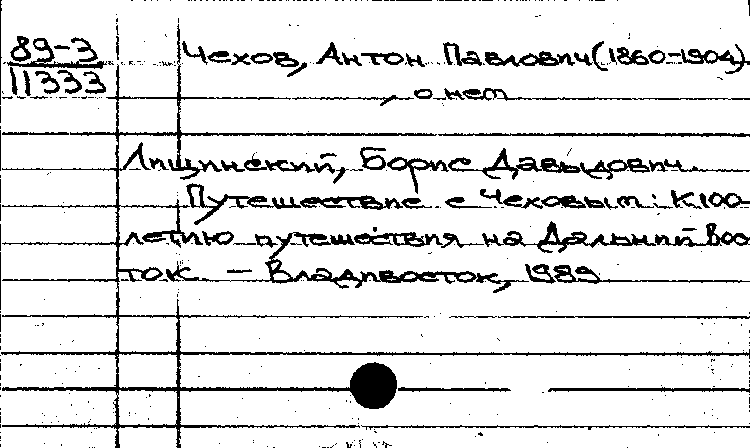 89-3 Чехов, Антон Павлович (1860-1904)
11333 , о нем
Лищинский, Борис Давыдович.
Путешествие с Чеховым: К 100-
летию путешествия на Дальний Вос
ток. — Владивосток, 1989